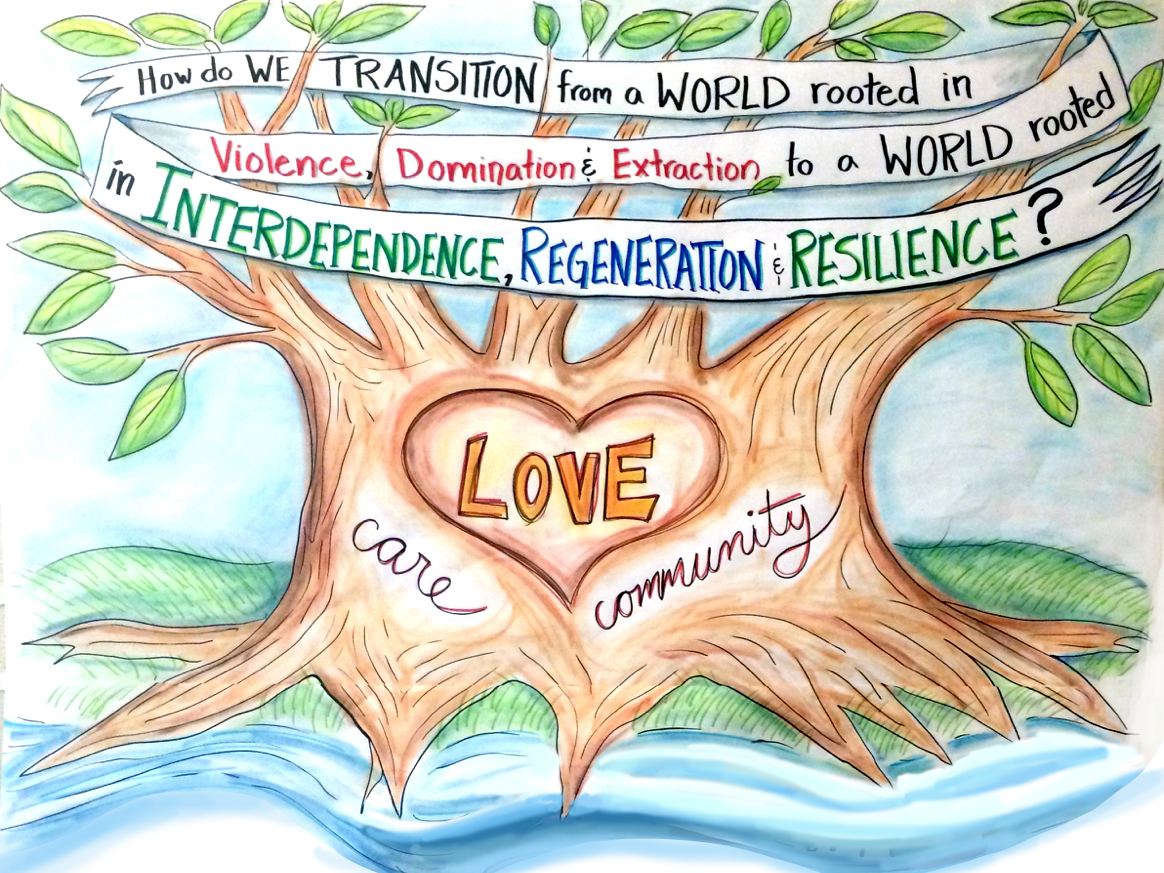 How do WE TRANSITION from a WORLD rooted in
Violence, Domination & Extraction to a WORLD rooted
in INTERDEPENDENCE, REGENERATION & RESILIENCE?
LOVE
care
community